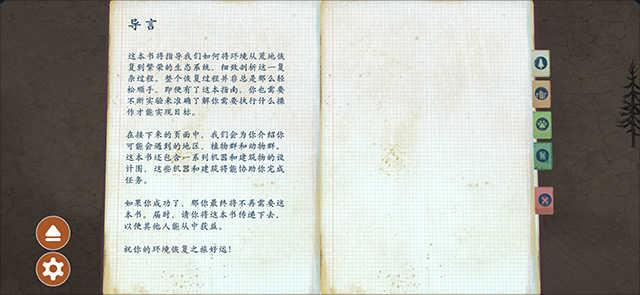 导言
这本书将指导我们如何将环境从荒地恢
复到繁荣的生态系统，细致剖析这一复
杂过程。整个恢复过程并非总是那么轻
松顺手，即便有了这本指南，你也需要
不断实验来准确了解你需要执行什么操
作才能实现目标。
在接下来的页面中，我们会为你介绍你
可能会遇到的地区、植物群和动物群。
这本书还包含一系列机器和建筑物的设
计图，这些机器和建筑将能协助你完成
任务。
如果你成功了，那你最终将不再需要这
本书。届时，请你将这本书传递下去，
以便其他人能从中获益。
祝你的环境恢复之旅好运！